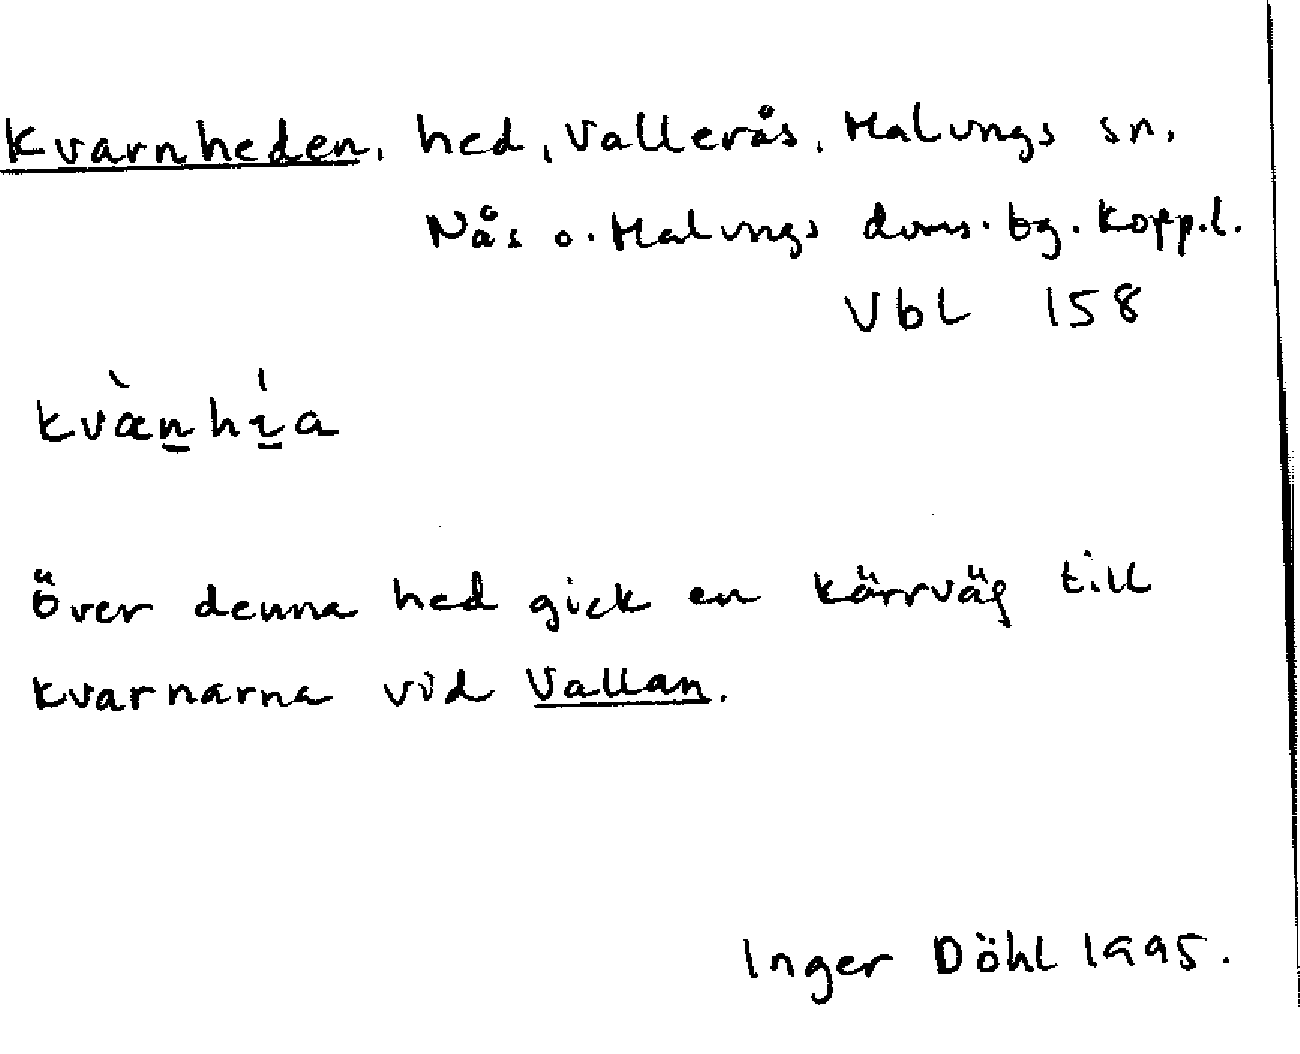 Kvarnheden, hed, Vallerås, Malungs sn.
Nås o. Malungs doms. bg. Kopp.l.
Vbl 158
kvæ̀n̲hí̲a
över denna hed gick en kärrväg till
kvarnarna vid Vallan.
Inger Döhl 1995.